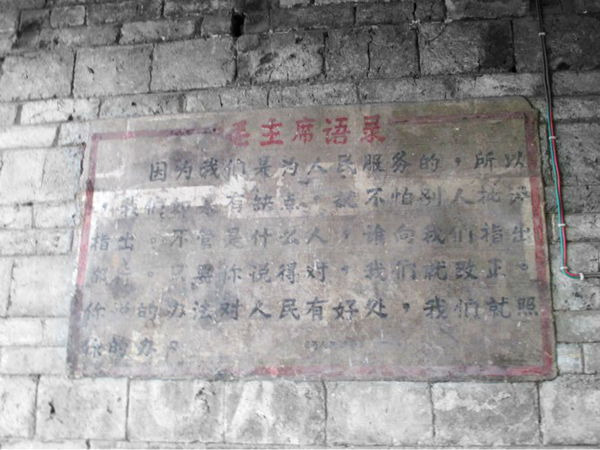 毛主席语录
因为我们是为人民服务的，所以
，我们如果有缺点，就不怕别人批评
指出。不管是什么人，谁向我们指出
都行。只要你说得对，我们就改正。
你说的办法对人民有好处，我们就照
你的办。